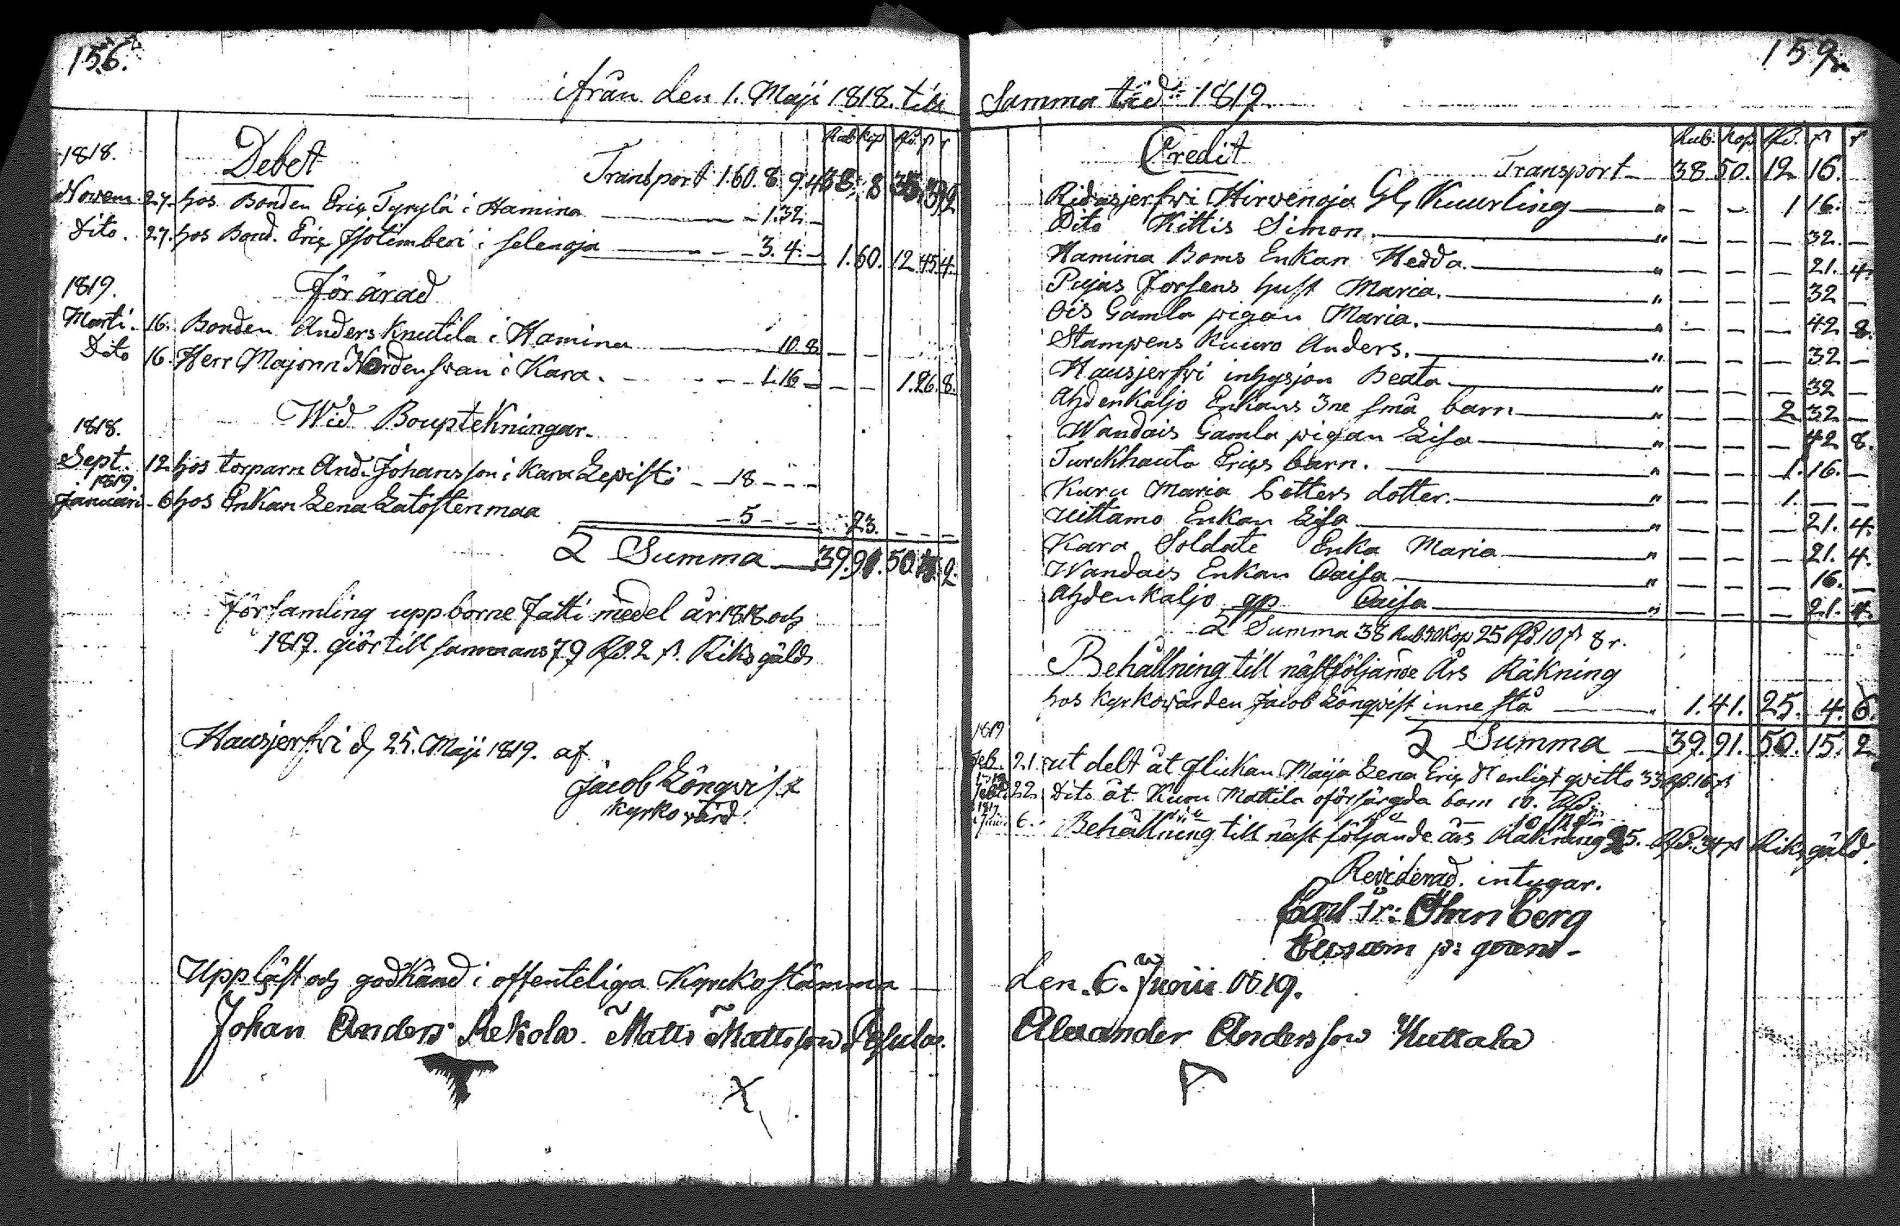 156.
ifrån den 1. Maji 1818. till
Rub. Kop Rd. ß r
1818. Debet Transport 1.60.8 9.4 38. 8 35.
Novem. 27. hos Bonden Eriq Tyrylä i Hamina — 1.32. —
Dito. 27. hos Bond. Eriq i Selenoja — 3. 4. — 1.60. 12 45.4.
1819. Förärad
Marti. 16. Bonden Anders Knutila i Hamina — 10.8
Dito 16. Herr Majorin Nordensvan i Kara. — 1.16 — 1.26.8.
Wid Bouptekningar.
1818.
Sept. 12 hos torparn And. Johansson i Kara Lepistö — 18 — — —
1819.
Januari. 6 hos Enkan Lena Latostenmaa — 5 — — — 23. — — —
Summa — 39.91. 50. 2.
församling uppborne fatti medel år 1818 och
1819. giör till sammans 79 Rd. 2 ß. Riksgäld
Hausjerfvi d. 25. Maji 1819. af
Jacob Lönqvist
Kyrko värd.
Uppläst och godkänd i offenteliga Kyrckostämma
Johan Anders Rekola. Matts Mattsson
159.
Samma tid 1819
Rub. Kop. Rd. ß r
Credit Transport — 38. 50. 12 16.
Ridasjerfvi Hirvenoja Gl. Kuurling — " — — 1 16. —
Dito Kittis Simon. — " — — — 32. —
Hamina Boms Enkan Hedda. — " — — — 21. 4.
Pujas Forsens hust Maria. — " — — — 32 —
Ois Gamla pigan Maria. — " — — — 42 8.
Stampens Kuuro Anders. — " — — — 32 —
Hausjerfvi inhysjon Beata — " — — — 32 —
Ahdenkaljo Enkans 3ne små barn — " — — 2 32 —
Wandais Gamla pigan Lisa — " — — — 42 8.
Turckhauta Eriqs barn. — " — — 1. 16. —
Kuru Maria Petters dotter. — " — — 1. — —
Uittamo Enkan Lisa — " — — — 21. 4.
Kara Soldate Enka Maria — " — — — 21. 4.
Wandais Enkan Caisa — " — — — 16. —
Ahdenkaljo Caisa — " — — — 21. 4.
Summa 38 Rub 50 Kop 25 Rd. 10 ß 8 r.
Behållning till nästföljande Års Räkning
hos Kyrkovärden Jacob Lönqvist inne stå — " 1.41. 25. 4. 6.
1819 Summa — 39.91. 50. 15. 2
Feb. 21. ut delt åt flickan Maija Lena Eriq dr enligt qvitto 33 Rd. 16 ß
22. Dito åt Kuru Mattila oförsörgda barn 10. Rd.
6. Behållning till näst följande års Räkning 35. Rd. 34 ß Riksgäld.
Reviderad. intygar.
Carl Fr:
den. 6. Junii 1819.
Alexander Andersson Kuttala